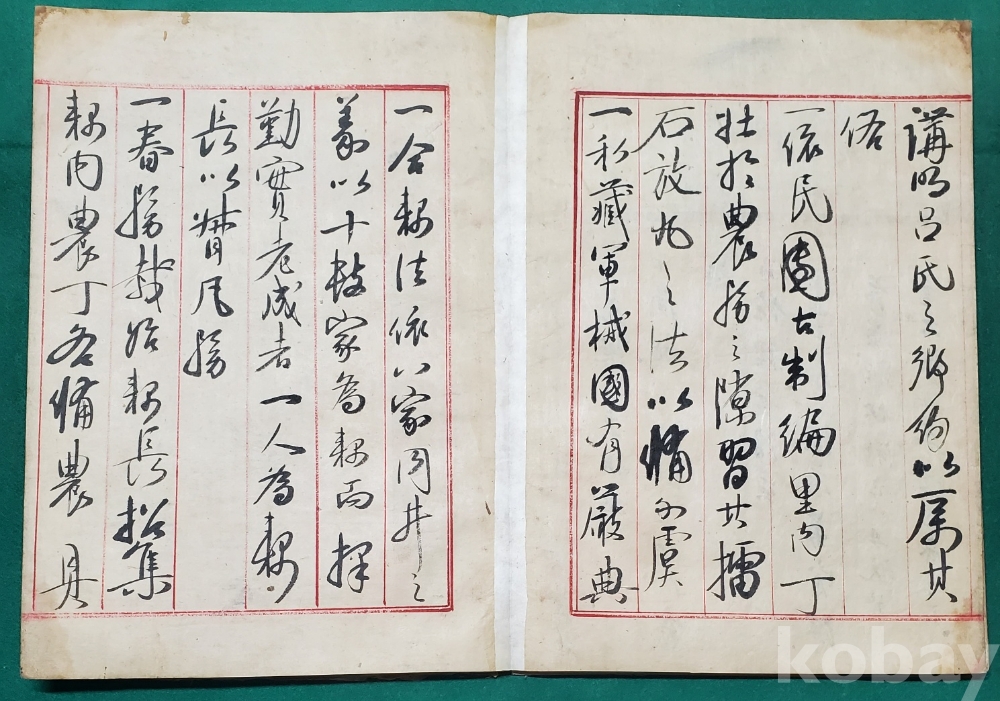 講明呂氏之鄉約以厲其
俗
一依民團古制編里內丁
壯於農務之隙習其擂
石放丸之法以備不虞
一私藏軍械國有嚴典
一合耦法依八家同井之
義以十數家為耦而擇
勤實老成者一人為耦
長以贊凡務
一春務載始耦長招集
耦內農丁各備農具
kobay